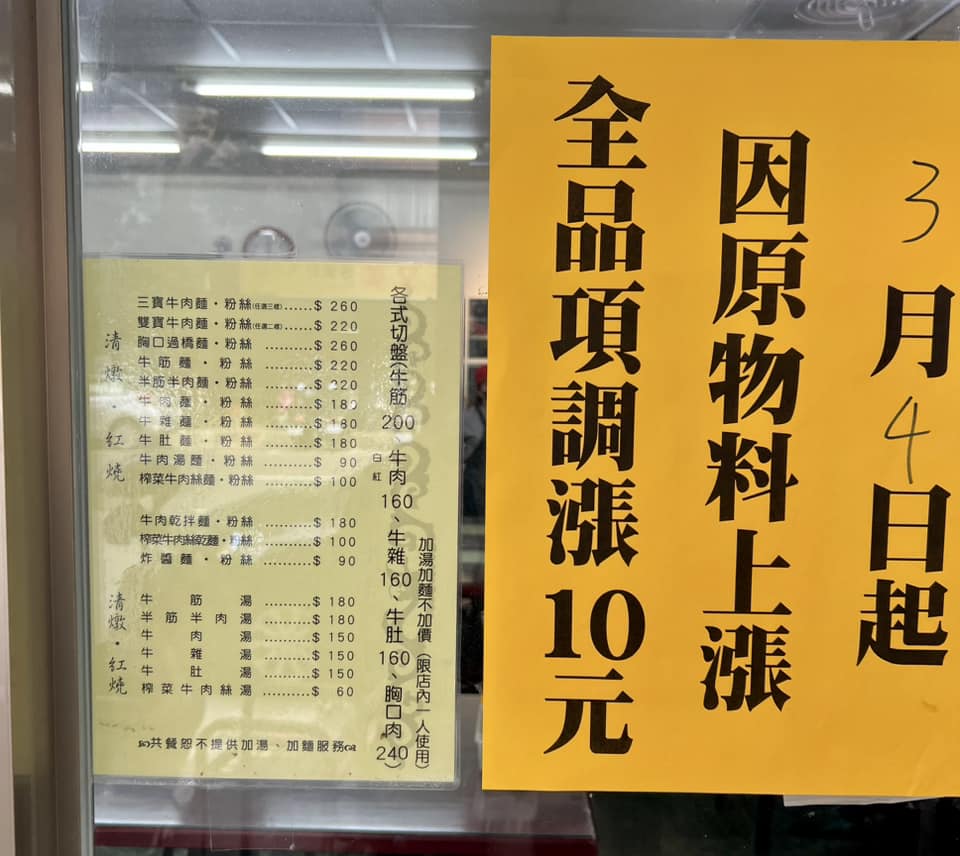 3月4日起
因原物料上漲
全品項調漲10元
各式切盤(牛筋200、牛肉160、牛雜160、牛肚160、胸口肉240)
白
紅
加湯加麵不加價(限店內一人使用)
清燉・紅燒
三寶牛肉麵・粉絲(任選三樣)......$ 260
雙寶牛肉麵・粉絲(任選二樣)......$ 220
胸口過橋麵・粉絲..........$ 260
牛筋麵・粉絲..........$ 220
半筋半肉麵・粉絲..........$ 220
牛肉麵・粉絲..........$ 180
牛雜麵・粉絲..........$ 180
牛肚麵・粉絲..........$ 180
牛肉湯麵・粉絲..........$ 90
榨菜牛肉絲麵・粉絲..........$ 100
牛肉乾拌麵・粉絲..........$ 180
榨菜牛肉絲乾麵・粉絲..........$ 100
炸醬麵・粉絲..........$ 90
清燉・紅燒
牛筋湯..........$ 180
半筋半肉湯..........$ 180
牛肉湯..........$ 150
牛雜湯..........$ 150
牛肚湯..........$ 150
榨菜牛肉絲湯..........$ 60
共餐恕不提供加湯、加麵服務